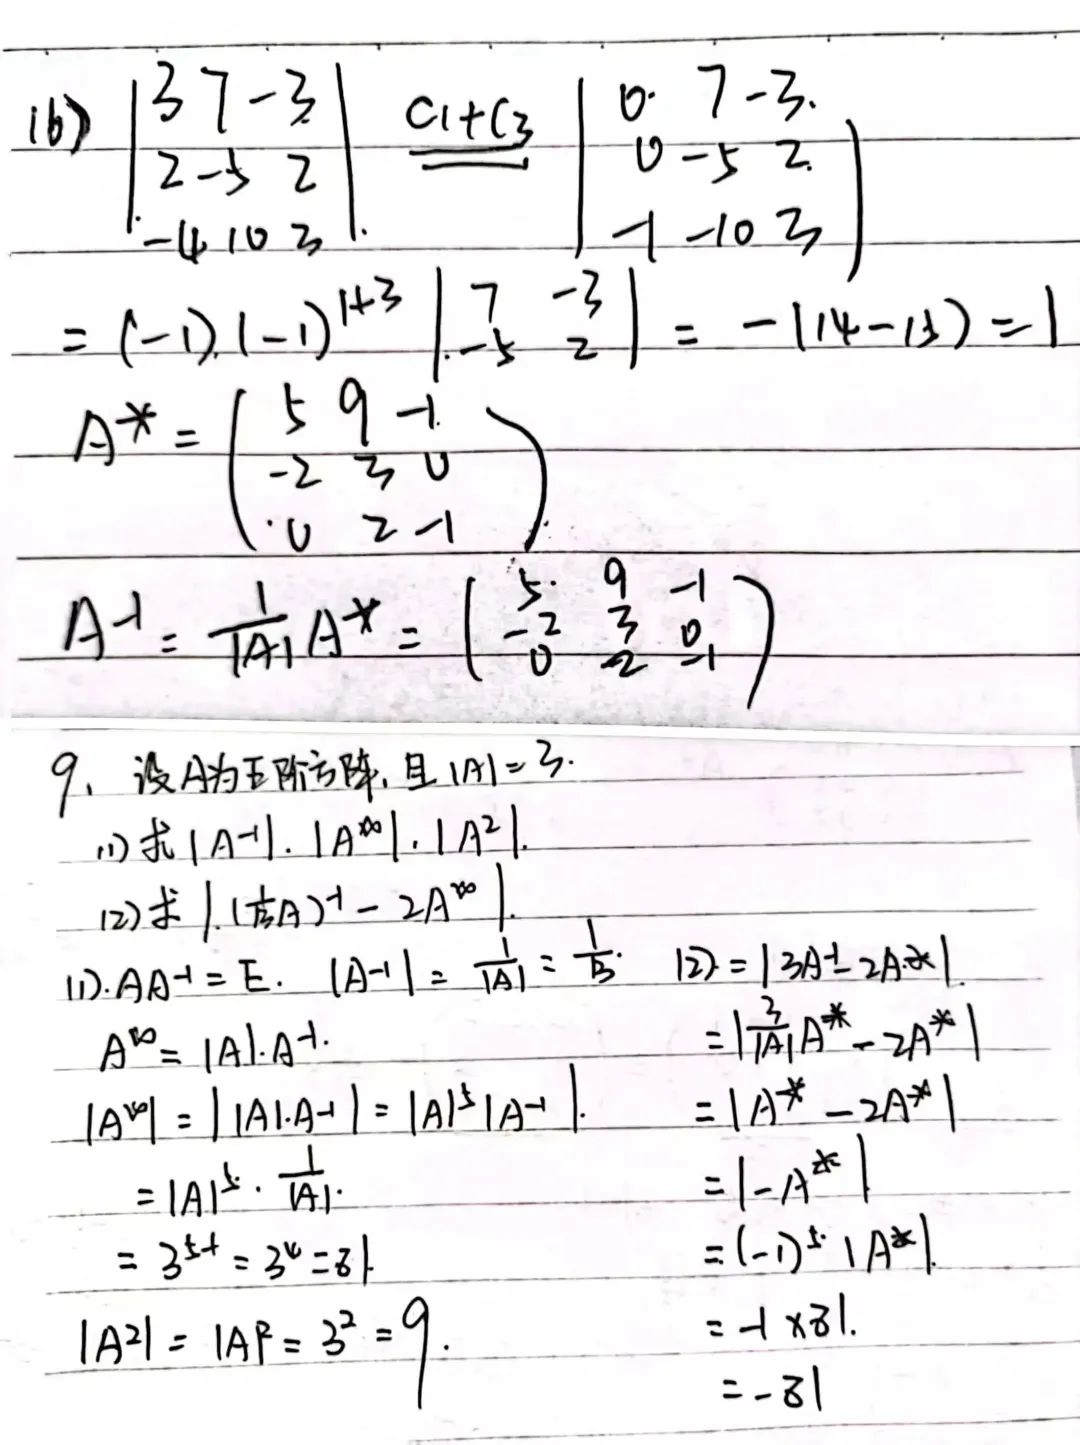 (6) | 3 7 -3 | C1+C3 | 0 7 -3 |
| 2 -5 2 | | 0 -5 2 |
| -4 10 3 | | -1 -10 3 |
= (-1)·(-1)^{1+3} | 7 -3 | = -(14-15) = 1
| -5 2 |
A* = ( 5 9 -1 )
( -2 3 0 )
( 0 2 -1 )
A^{-1} = \frac{1}{|A|} A* = ( 5 9 -1 )
( -2 3 0 )
( 0 -2 -1 )
9. 设A为五阶方阵,且|A|=3.
(1) 求|A^{-1}|. |A*|. |A^2|.
(2) 求|(\frac{1}{3}A)^{-1} - 2A*|.
(1). AA^{-1} = E. |A^{-1}| = \frac{1}{|A|} = \frac{1}{3}.
A* = |A|·A^{-1}.
|A*| = ||A|·A^{-1}| = |A|^5 |A^{-1}|.
= |A|^5 · \frac{1}{|A|}.
= 3^{5-1} = 3^4 = 81
|A^2| = |A|^2 = 3^2 = 9.
(2) = |3A^{-1} - 2A*|.
= |\frac{3}{|A|} A* - 2A*|
= |A* - 2A*|
= |-A*|
= (-1)^5 · |A*|.
= -1 × 81.
= -81